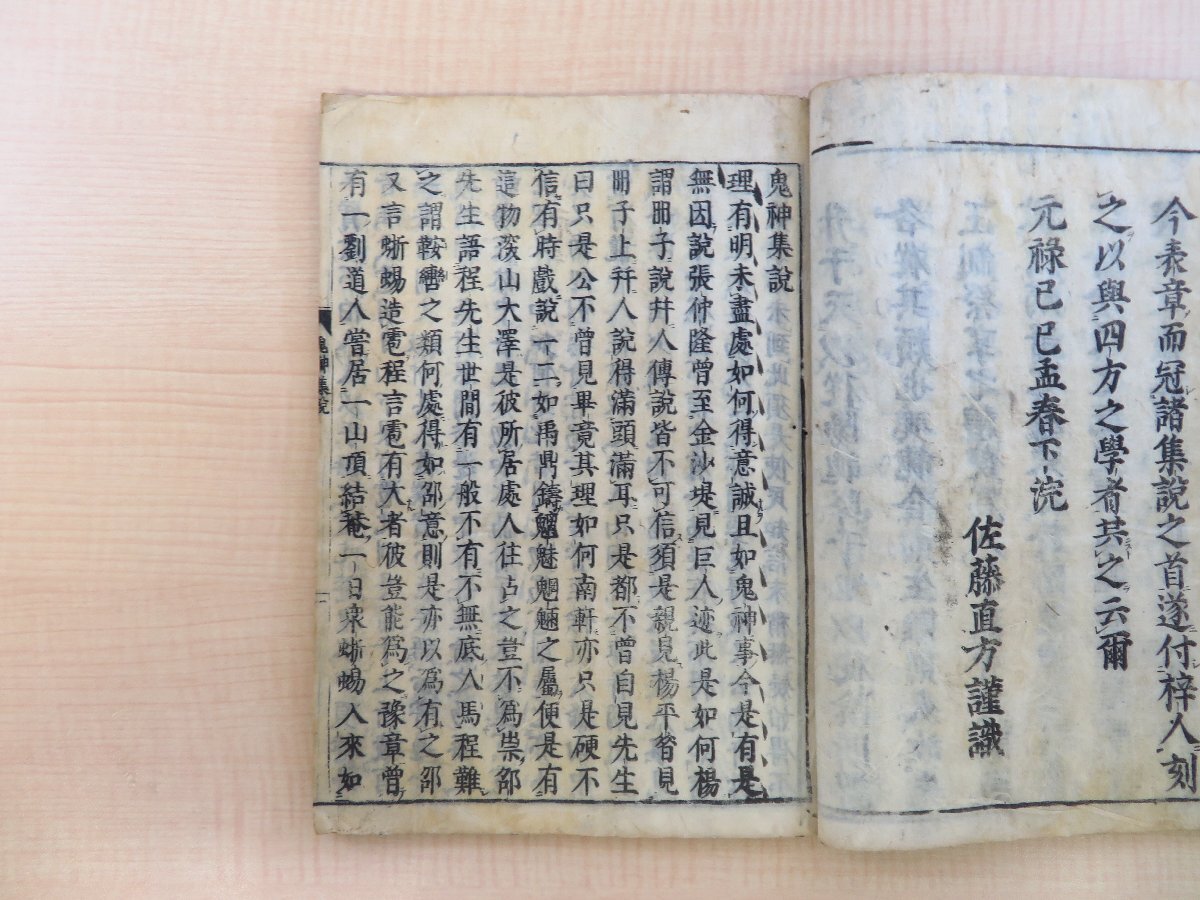 今表章而冠諸集說之首遂付梓人刻
之以與四方之學者共之云爾
元祿己巳孟春下浣
佐藤直方謹識
鬼神集說
理有明未盡處如何得意誠且如鬼神事今是有是
無因說張仲隆曾至金沙堤見巨人迹此是如何楊
謂冊子說幷人傳說皆不可信須是親見楊平昔見
冊子上幷人說得滿頭滿耳只是都不曾自見先生
曰只是公不曾見畢竟其理如何南軒亦只是硬不
信有時戲說一二如禹鼎鑄魑魅魍魎之屬便是有
這物深山大澤是彼所居處人往占之豈不爲祟邵
先生語程先生世間有一般不有不無底人馬程難
之謂鞍轡之類何處得如邵意則是亦以爲有之邵
又言蜥蜴造雹程言雹有大者彼豈能爲之豫章曾
有一劉道人嘗居一山頂結菴一日衆蜥蜴入來如
鬼神集說
一